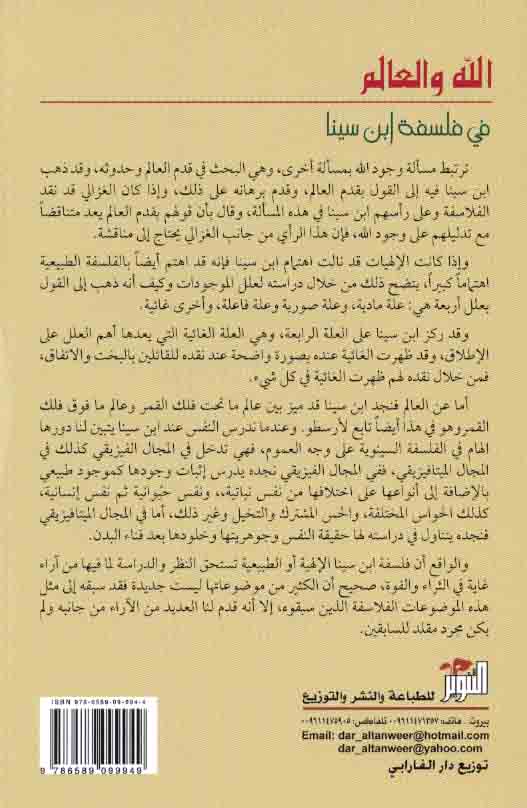 الله والعالم
في فلسفة إبن سينا
ترتبط مسألة وجود الله بمسألة أخرى، وهي البحث في قدم العالم وحدوثه، وقد ذهب
ابن سينا فيه إلى القول بقدم العالم، وقدم برهانه على ذلك، وإذا كان الغزالي قد نقد
الفلاسفة وعلى رأسهم ابن سينا في هذه المسألة، وقال بأن قولهم بقدم العالم يعد متناقضاً
مع تدليلهم على وجود الله، فإن هذا الرأي من جانب الغزالي يحتاج إلى مناقشة.
وإذا كانت الإلهيات قد نالت اهتمام ابن سينا فإنه قد اهتم أيضاً بالفلسفة الطبيعية
اهتماماً كبيراً، يتضح ذلك من خلال دراسته لعلل الموجودات وكيف أنه ذهب إلى القول
بعلل أربعة هي: علة مادية، وعلة صورية وعلة فاعلة، وأخرى غائية.
وقد ركز ابن سينا على العلة الرابعة، وهي العلة الغائية التي يعدها أهم العلل على
الإطلاق، وقد ظهرت الغائية عنده بصورة واضحة عند نقده للقائلين بالبخت والاتفاق،
فمن خلال نقده لهم ظهرت الغائية في كل شيء.
أما عن العالم فنجد ابن سينا قد ميز بين عالم ما تحت فلك القمر وعالم ما فوق فلك
القمر وهو في هذا أيضاً تابع لأرسطو. وعندما ندرس النفس عند ابن سينا يتبين لنا دورها
الهام في الفلسفة السينوية على وجه العموم، فهي تدخل في المجال الفيزيقي كذلك في
المجال الميتافيزيقي، ففي المجال الفيزيقي نجده يدرس إثبات وجودها كموجود طبيعي
بالإضافة إلى أنواعها على اختلافها من نفس نباتية، ونفس حيوانية ثم نفس إنسانية،
كذلك الحواس المختلفة، والحس المشترك والتخيل وغير ذلك، أما في المجال الميتافيزيقي
فنجده يتناول في دراسته لها حقيقة النفس وجوهريتها وخلودها بعد فناء البدن.
والواقع أن فلسفة ابن سينا الإلهية أو الطبيعية تستحق النظر والدراسة لما فيها من آراء
غاية في الثراء والقوة، صحيح أن الكثير من موضوعاتها ليست جديدة فقد سبقه إلى مثل
هذه الموضوعات الفلاسفة الذين سبقوه، إلا أنه قدم لنا العديد من الآراء من جانبه ولم
يكن مجرد مقلد للسابقين.
التنوير للطباعة والنشر والتوزيع
بيروت - هاتف: ٠٠٩٦١١٤٧١٣٥٧ تلفاكس: ٠٠٩٦١١٤٧٥٩٠٥
Email: dar_altanweer@hotmail.com
dar_altanweer@yahoo.com
توزيع دار الفارابي
ISBN 978-6589-09-994-4
9 786589 099949